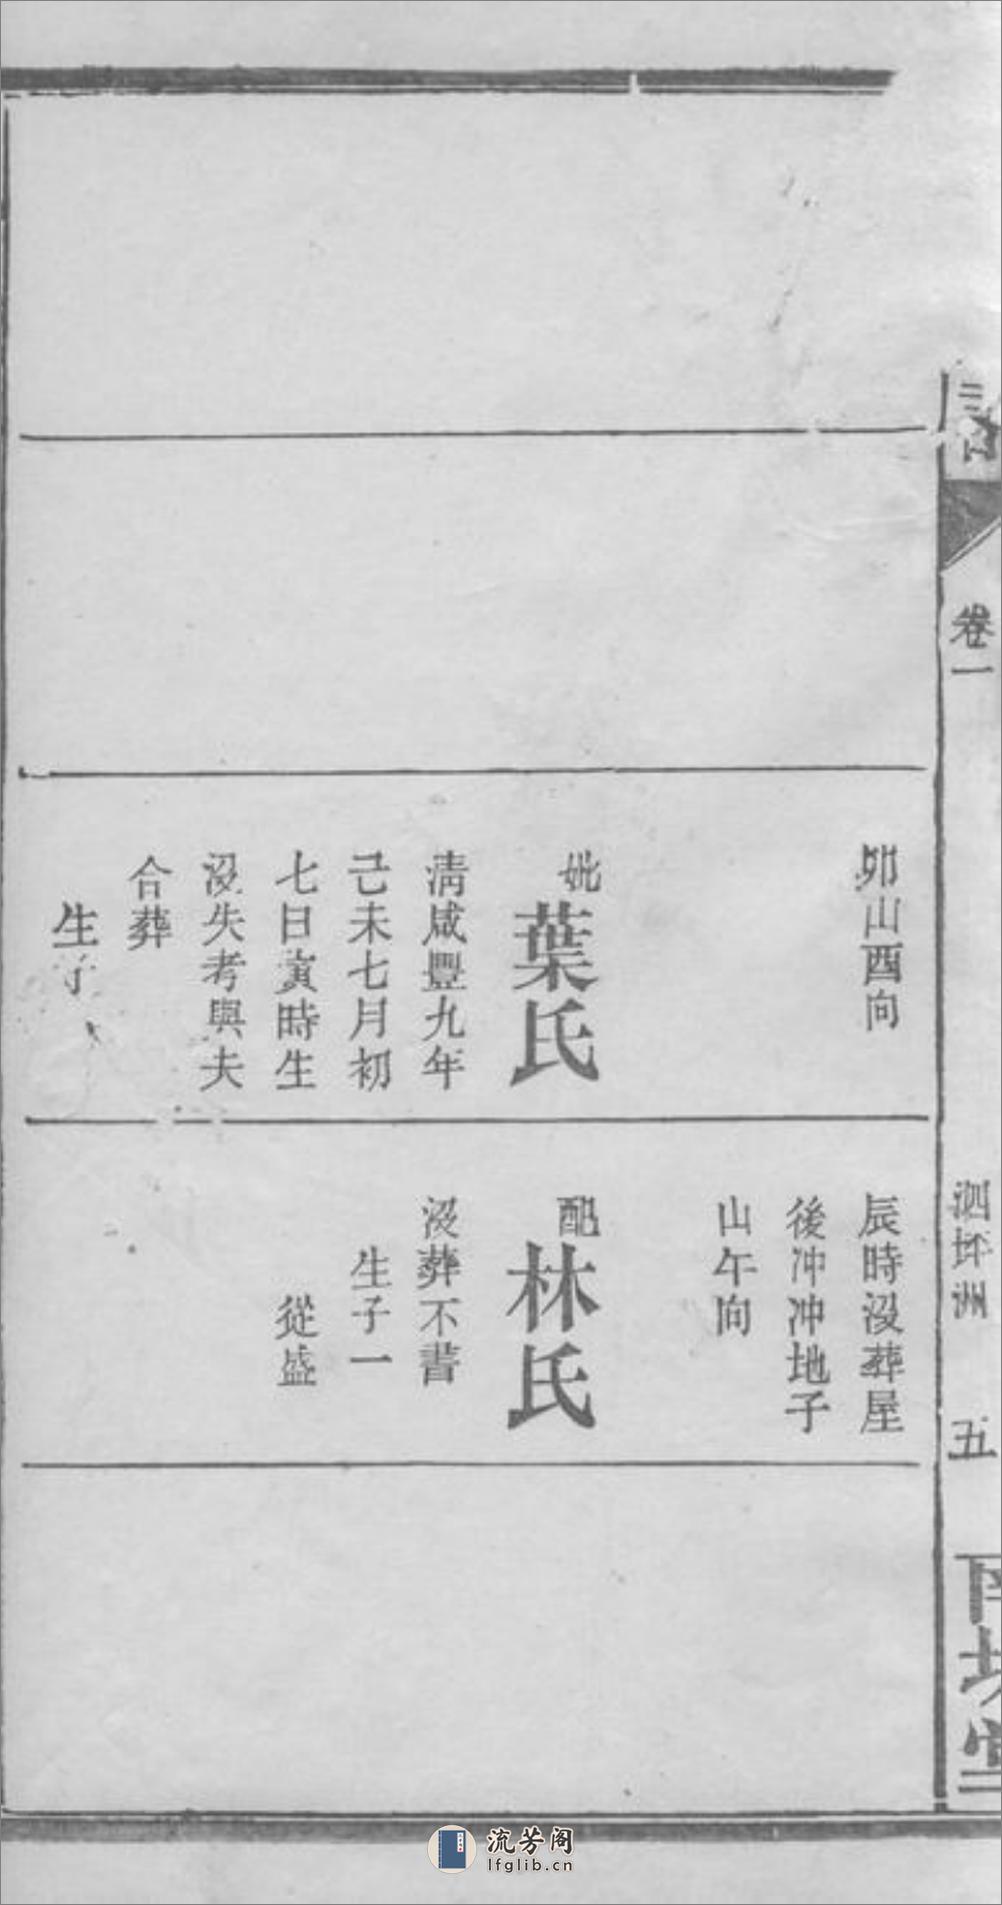 卷一
泗坪洲
五
卯山酉向
妣
葉氏
清咸豐九年
己未七月初
七日寅時生
沒失考與夫
合葬
生子
辰時沒葬屋
後冲冲地子
山午向
配
林氏
沒葬不書
生子一
從盛
流芳阁
lfglib.cn